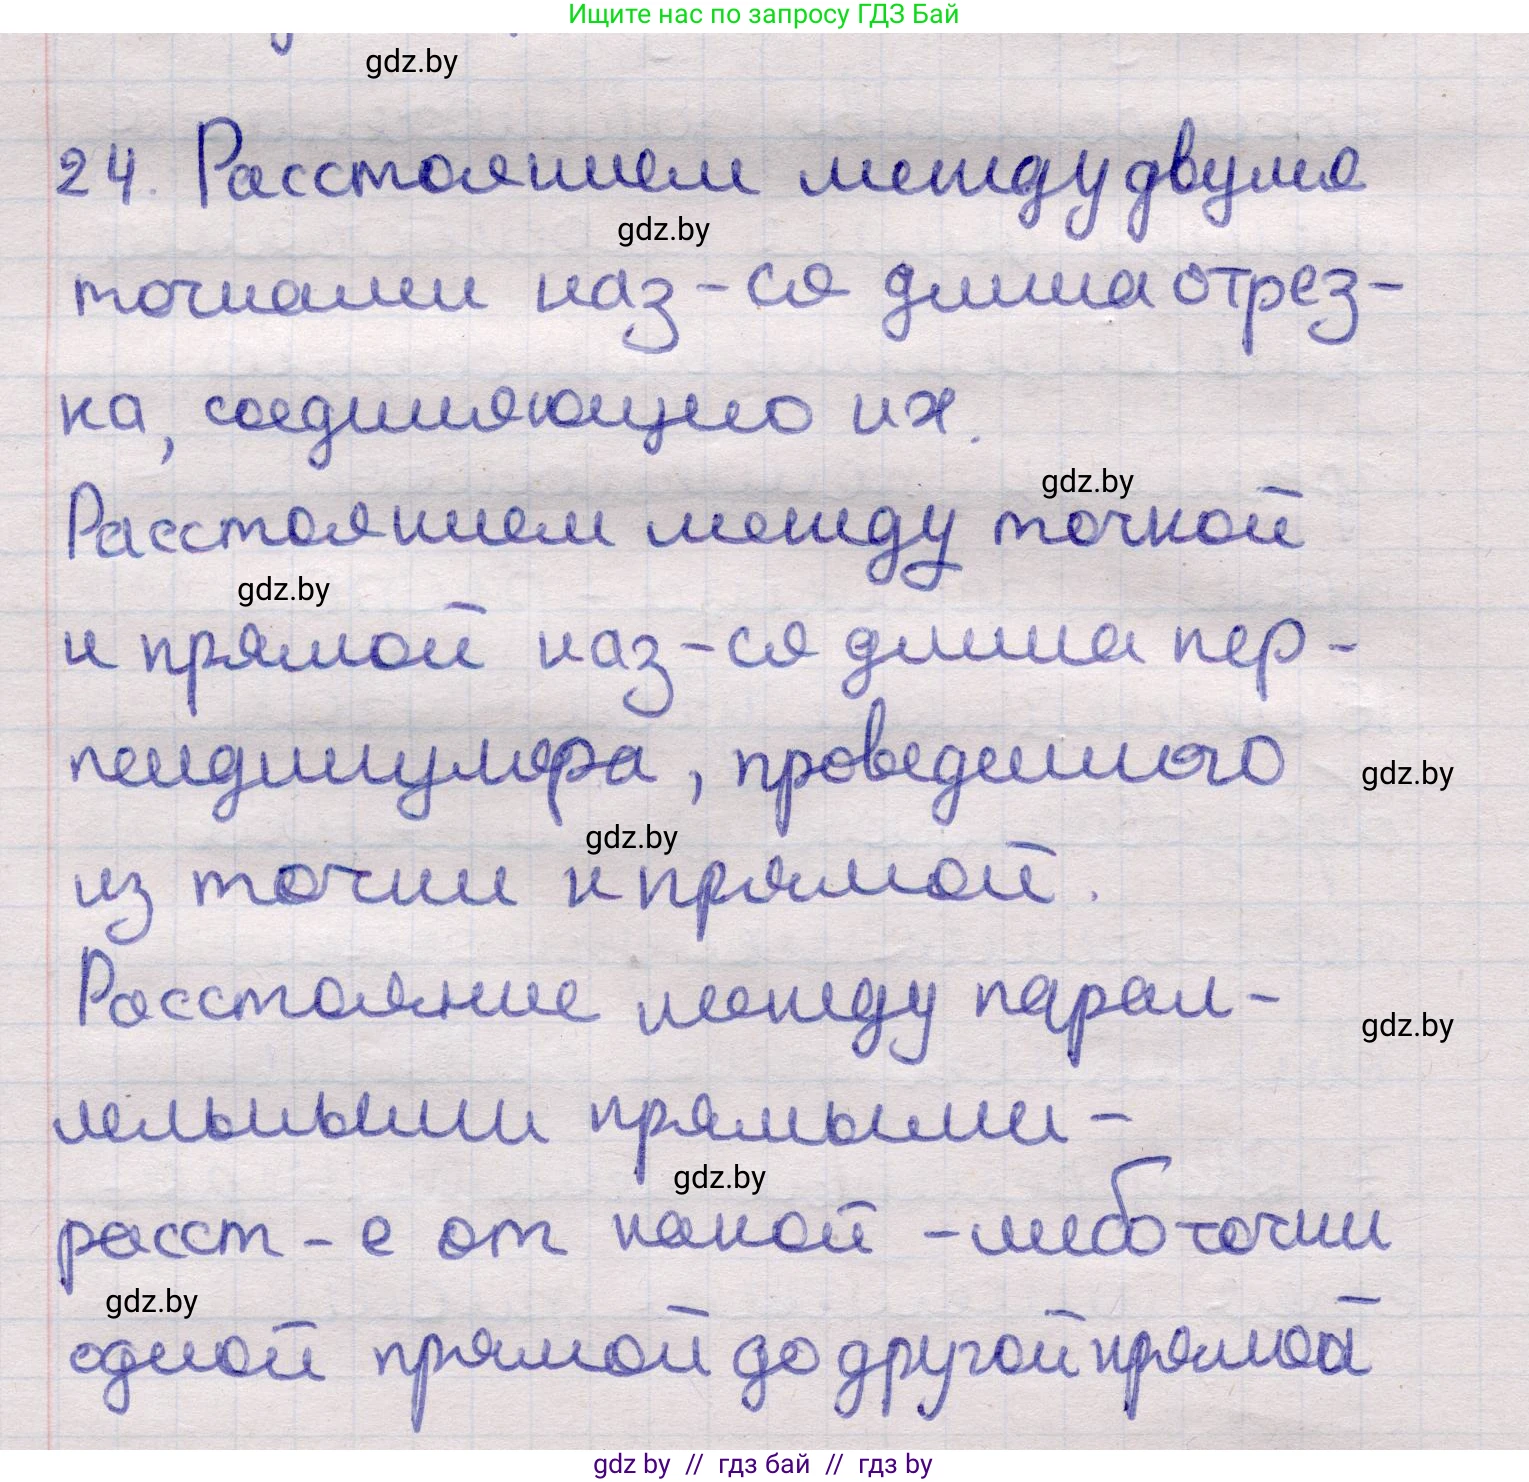 Ищите нас по запросу ГДЗ Бай
gdz.by
24. Расстоянием между двумя
gdz.by
точками наз-ся длина отрез-
ка, соединяющего их.
gdz.by
Расстоянием между точкой
gdz.by
и прямой наз-ся длина пер-
пендикуляра, проведенного
gdz.by
gdz.by
из точки к прямой.
Расстояние между парал-
gdz.by
лельными прямыми -
gdz.by
расст-е от какой-либо точки
gdz.by
одной прямой до другой прямой
gdz.by // гдз бай // гдз by